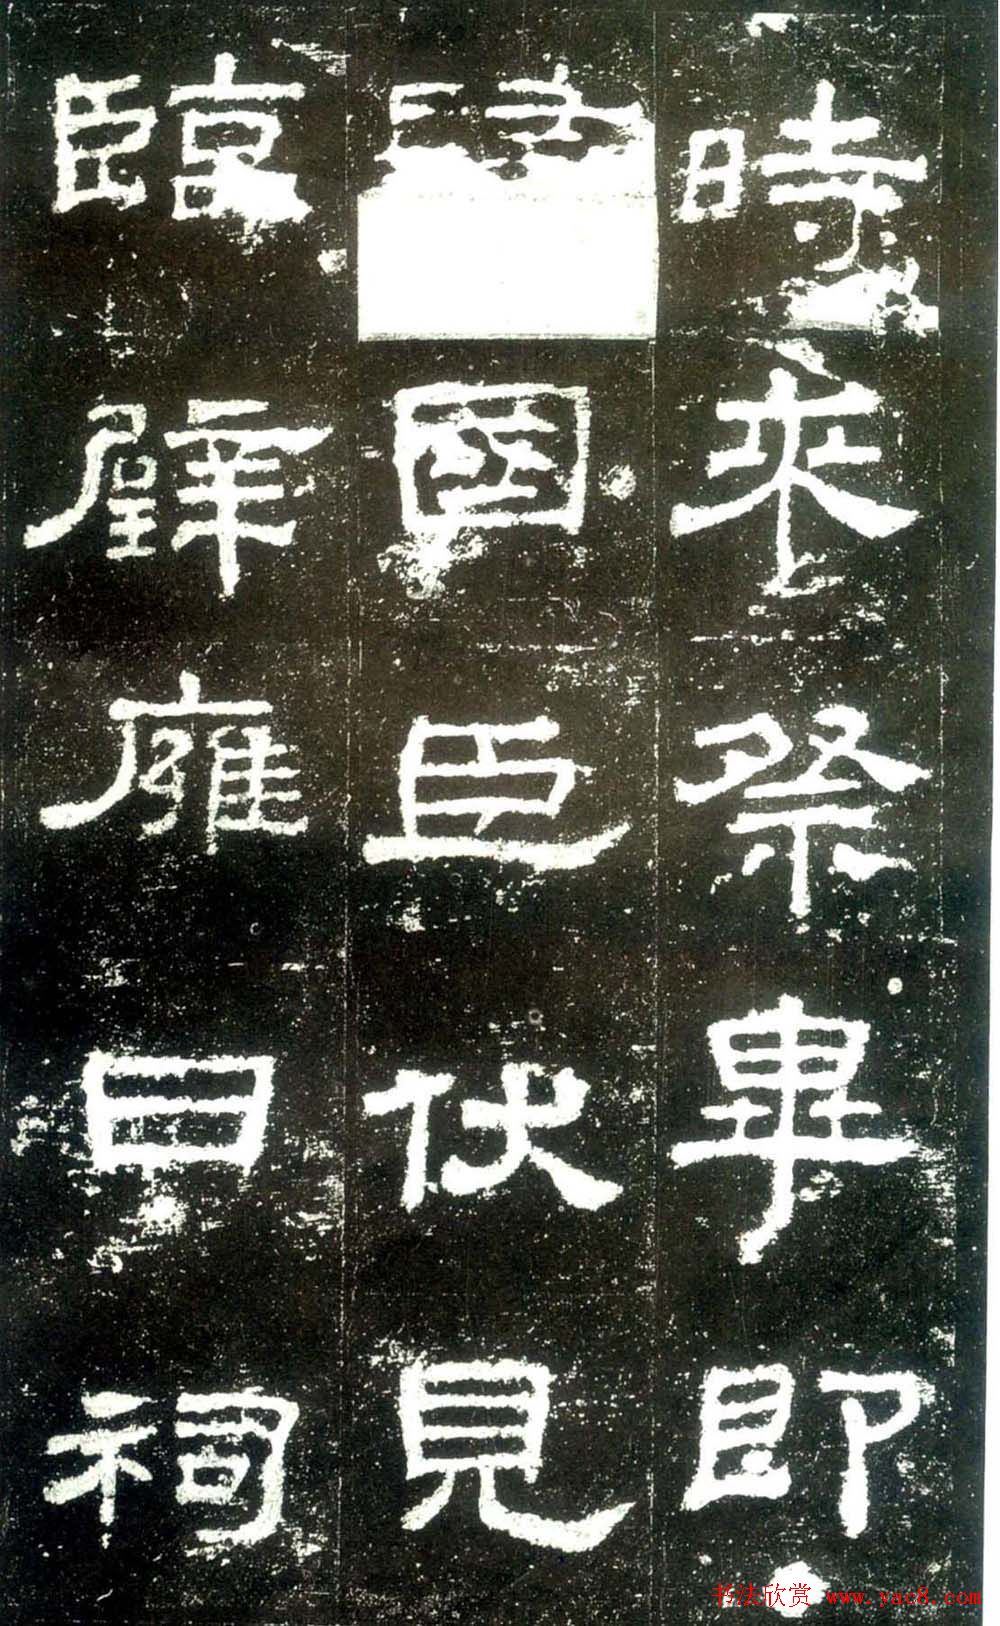 時來祭畢即
國臣伏見
臨璧雍日祠
书法欣赏 www.yac8.com